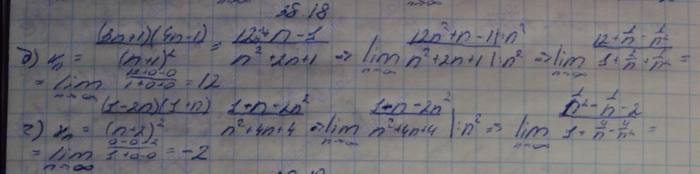 38.18
б) xₙ = (3n+1)(4n-1)/(n+1)² = 12n²+n-1/n²+2n+1 ⇒ lim n→∞ 12n²+n-1|:n²/n²+2n+1|:n² ⇒ lim n→∞ 12+1/n-1/n²/1+2/n+1/n² =
= lim n→∞ 12+0-0/1+0+0 = 12
г) xₙ = (1-2n)(1+n)/(n-2)² 1+n-2n²/n²+4n+4 ⇒ lim n→∞ 1+n-2n²/n²+4n+4 |:n² ⇒ lim n→∞ 1/n²-1/n-2/1+4/n-4/n² =
= lim n→∞ 0-0-2/1+0-0 = -2